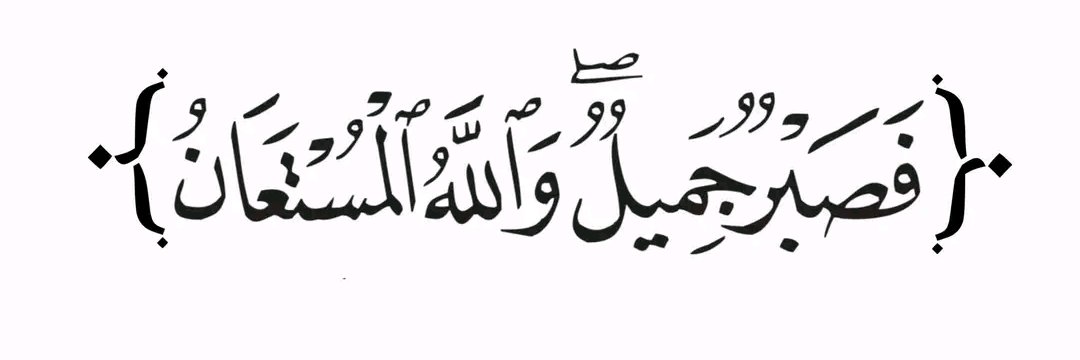 ﴿فَصَبْرٌ جَمِيلٌ ۖ وَٱللَّهُ ٱلْمُسْتَعَانُ﴾